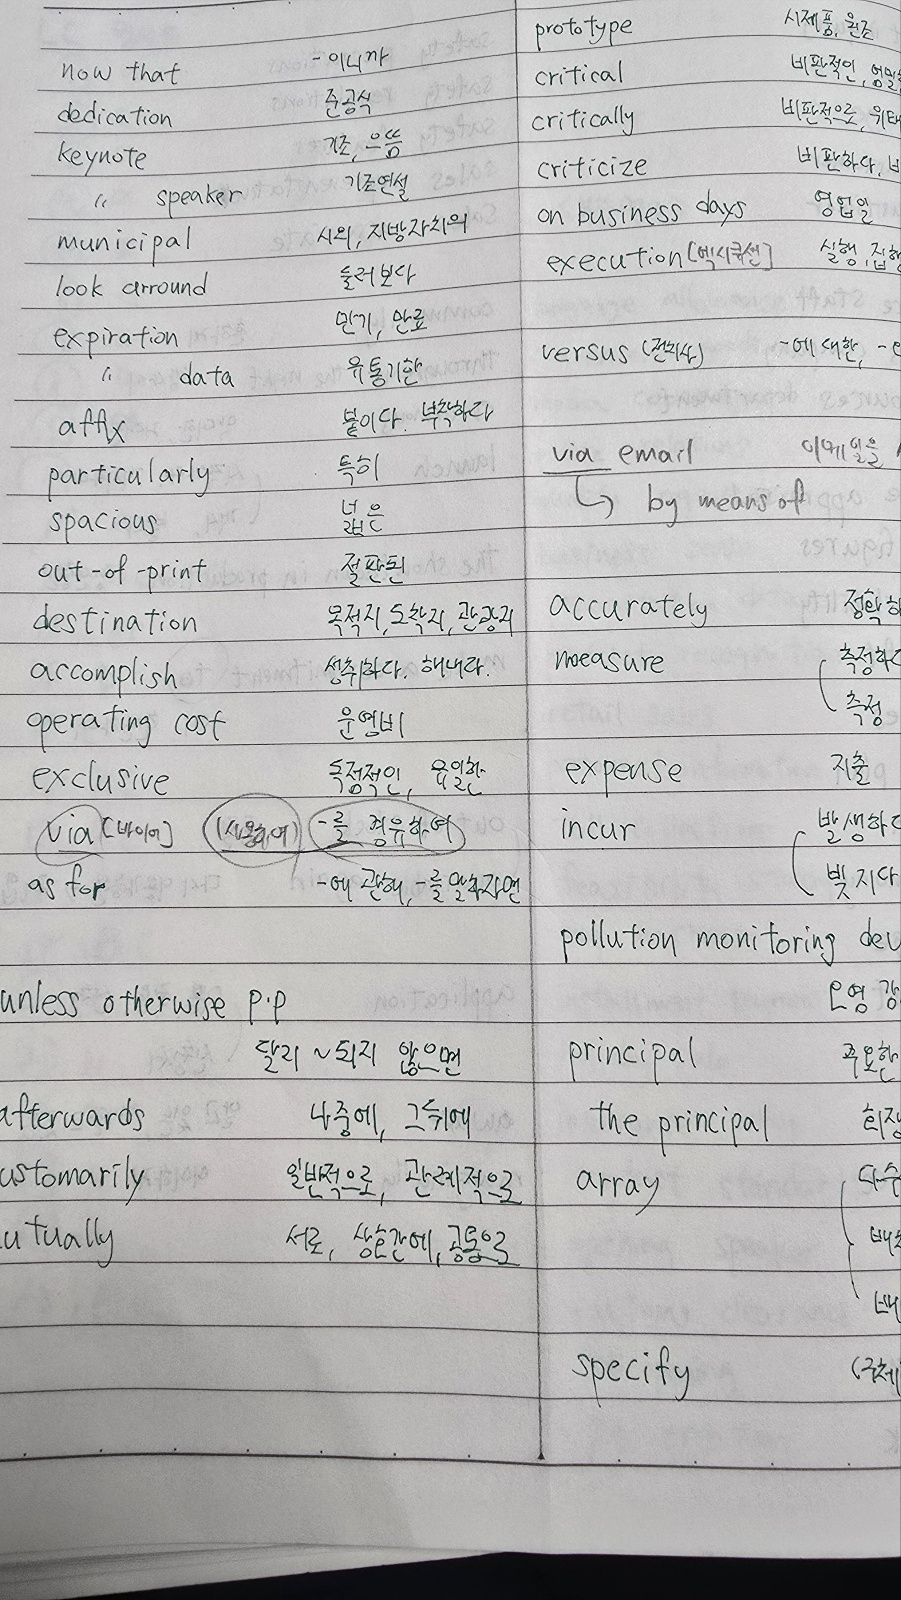 now that -이니까
dedication 준공식
keynote 기조, 으뜸
〃 speaker 기조연설
municipal 시의, 지방자치의
look arround 둘러보다
expiration 만기, 만료
〃 data 유통기한
affix 붙이다. 부착하다
particularly 특히
spacious 넓은
out-of-print 절판된
destination 목적지, 도착지, 관광지
accomplish 성취하다. 해내다.
operating cost 운영비
exclusive 독점적인, 유일한
via [바이어] (사용하여) -를 경유하여
as for -에 관해, -를 말하자면
unless otherwise p.p
달리 ~되지 않으면
afterwards 나중에, 그뒤에
ustomarily 일반적으로, 관례적으로
utually 서로, 상호간에, 공통으로
prototype 시제품, 원조
critical 비판적인,
critically 비판적으로, 위태
criticize 비판하다,
on business days 영업일
execution [엑시큐션] 실행, 집행
versus (전치사) -에 대한,
via email 이메일을
↳ by means of
accurately 정확하
measure 측정하다
측정
expense 지출
incur 발생하다
빚지다
pollution monitoring dev
오영
principal 주요한
the principal 회장
array 다수
specify (구체